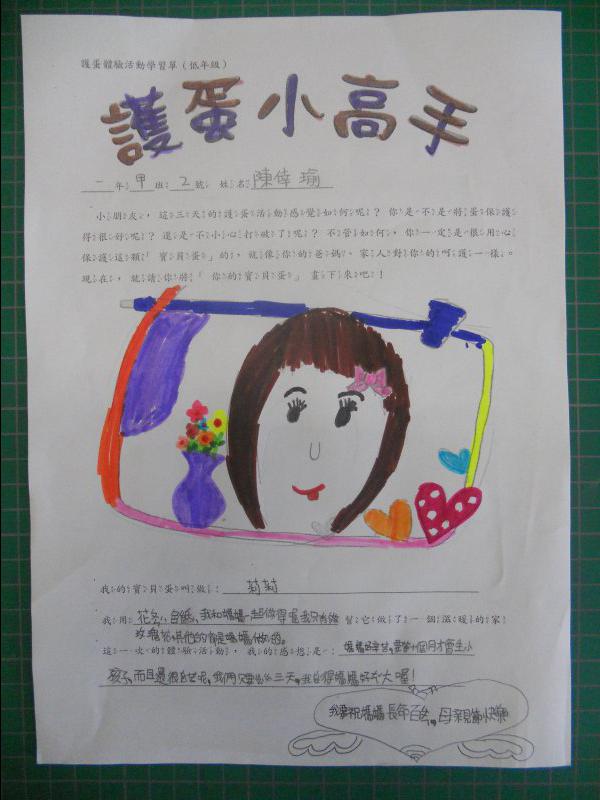 護蛋體驗活動學習單(低年級)
護蛋小高手
一年甲班2號 姓名陳倖瑜
小朋友,這三天的護蛋活動感覺如何呢?你是不是將蛋保護
得很好呢?還是不小心打破了呢?不管如何,你一定是很用心
保護這顆「寶貝蛋」的,就像你的爸媽、家人對你的呵護一樣。
現在,就請你將「你的寶貝蛋」畫下來吧!
我的寶貝蛋叫做:莉莉
我用花, 白紙,我和媽媽一起做得喔我只有做 幫它做了一個溫暖的家!
玫瑰花其他的都是媽媽做的。
這一次的體驗活動,我的感想是:媽媽好辛苦,要等十個月才會生小
孩子,而且還很 呢,我們只要 三天,我覺得媽媽好 大喔!
我要祝媽媽長命百歲,母親節快樂